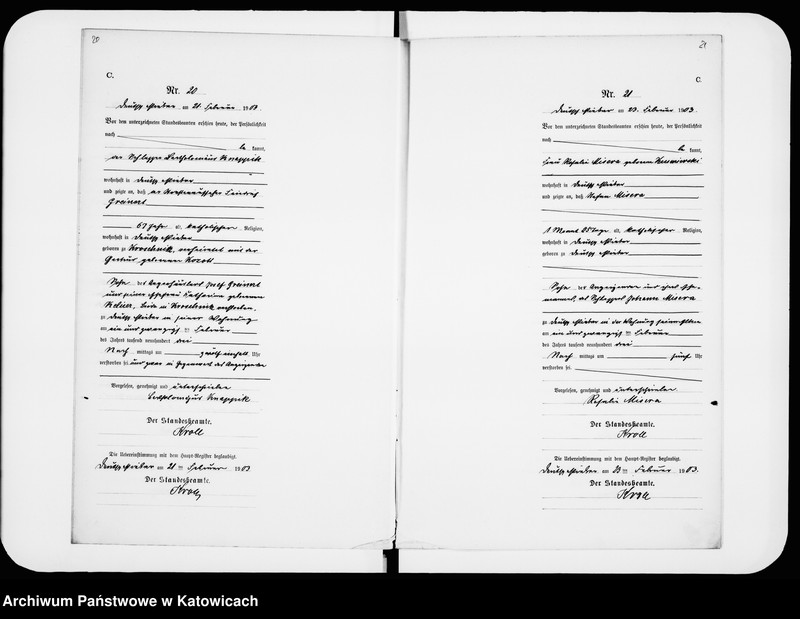 20
C.
Nr. 20
am 21. Februar 1903
Vor dem unterzeichneten Standesbeamten erschien heute, der Persönlichkeit
nach
be kannt,
der Schlepper
wohnhaft in Deutsch
und zeigte an, daß der
67 Jahr alt, katholischer Religion,
wohnhaft in Deutsch
geboren zu verheiratet mit der
geborenen
Sohn des Josef
und seiner Ehefrau Katharina geborenen
beide in verstorben,
zu Deutsch in seiner Wohnung
am ein und zwanzigsten Februar
des Jahres tausend neunhundert drei
Nach mittags um Uhr
verstorben sei und zwar in Gegenwart des Anzeigenden
Vorgelesen, genehmigt und unterschrieben
Der Standesbeamte.
Kroll
Die Uebereinstimmung mit dem Haupt-Register beglaubigt.
Deutsch am 21 ten Februar 1903
Der Standesbeamte.
Kroll
21
C.
Nr. 21
am 23. Februar 1903.
Vor dem unterzeichneten Standesbeamten erschien heute, der Persönlichkeit
nach
be kannt,
Frau Rosalie Misera geborene
wohnhaft in Deutsch
und zeigte an, daß Stefan Misera
1 Monat Tage alt, katholischer Religion,
wohnhaft in Deutsch
geboren zu Deutsch
Sohn der Anzeigenden und ihres Ehe-
mannes, des Schleppers Johann Misera
zu Deutsch in der Wohnung seiner Eltern
am ein und zwanzigsten Februar
des Jahres tausend neunhundert drei
Nach mittags um fünf Uhr
verstorben sei.
Vorgelesen, genehmigt und unterschrieben
Rosalie Misera
Der Standesbeamte.
Kroll
Die Uebereinstimmung mit dem Haupt-Register beglaubigt.
Deutsch am 23 ten Februar 1903.
Der Standesbeamte.
Kroll
Archiwum Państwowe w Katowicach